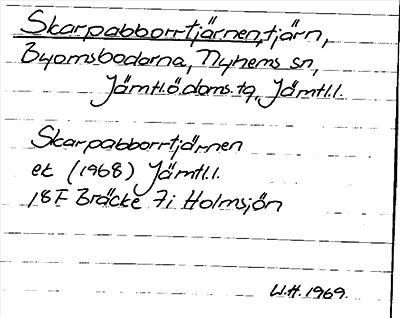 Skarpabborrtjärnen, tjärn,
Byomsbodarna, Nyhems sn,
Jämtl.ö.doms.tg, Jämtl.l.
Skarpabborrtjärnen
ek (1968) Jämtl.l.
18F Bräcke 7i Holmsjön
W.H. 1969.